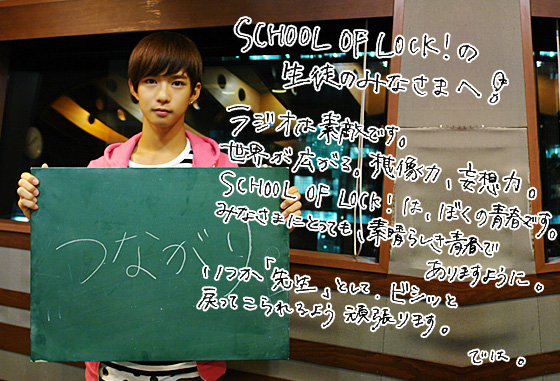 SCHOOL OF LOCK!の
生徒のみなさまへ
ラジオは素敵です。
世界が広がる。想像力、妄想力。
SCHOOL OF LOCK!は、ぼくの青春です。
みなさまにとっても、素晴らしき青春で
ありますように。
いつか「先生」として、ビシッと
戻ってこられるよう頑張ります。
では。
つながり